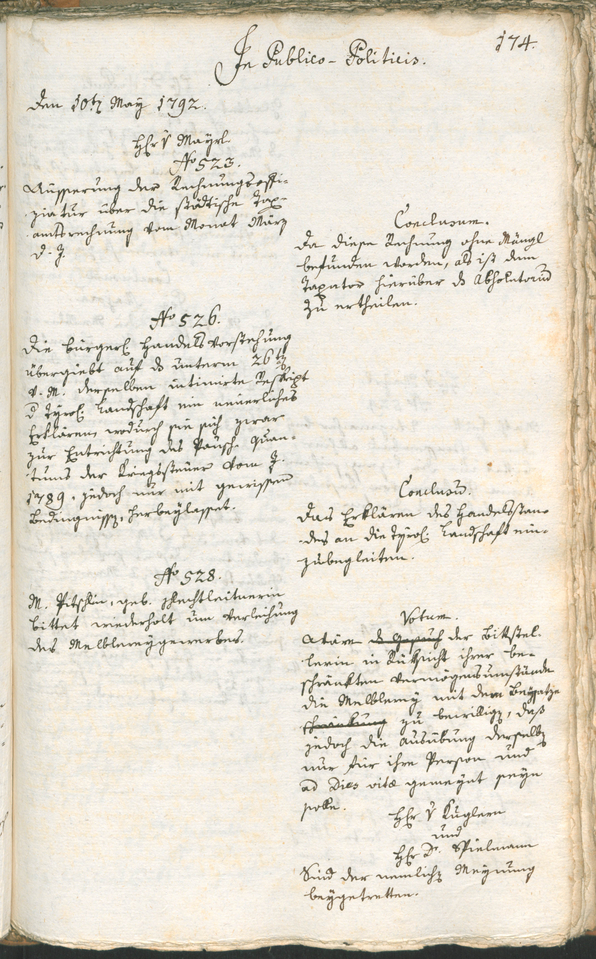 174.
In Publico-Politicis.
Den 10t May 1792.
Hr v Mayrl
No 523.
Äusserung der Rechnungsoffi-
ziatur über die städtische Tax-
amtsrechnung vom Monat März
d. J.
Conclusum.
Da diese Rechnung ohne Mängl
befunden worden, als ist dem
Taxator hierüber ds Absolutorium
zu ertheilen.
No 526.
Die bürgerl. Handelsvorstehung
übergiebt auf ds unterm 26t
v. M. derselben intimirte Reskript
d Tyrol. Landschaft ein neuerliches
Erklären, wodurch sie sich zwar
zur Entrichtung des Pausch. Quan-
tums der Kriegssteuer vom J.
1789. jedoch nur mit gewissen
Bedingnissen, herbeylasset.
Conclusum.
Das Erklären des Handelsstan-
des an die Tyrol. Landschaft ein-
zubegleiten.
No 528.
M. Pitschin, geb.
bittet wiederholt um Verleihung
des Melblereygewerbes.
Votum.
ds Gesuch der Bittstel-
lerin in Rücksicht ihrer be-
schränkten Vermögensumstände
die Melblerey mit dem Beysatze
zu bewilligen, daß
jedoch die Ausübung derselben
nur für ihre Person und
ad dies vitæ gemeynt seyn
solle.
Hr v Kuglern
und
Hr Dr. Spielmann
Sind der nemlichen Meynung
beygetretten.